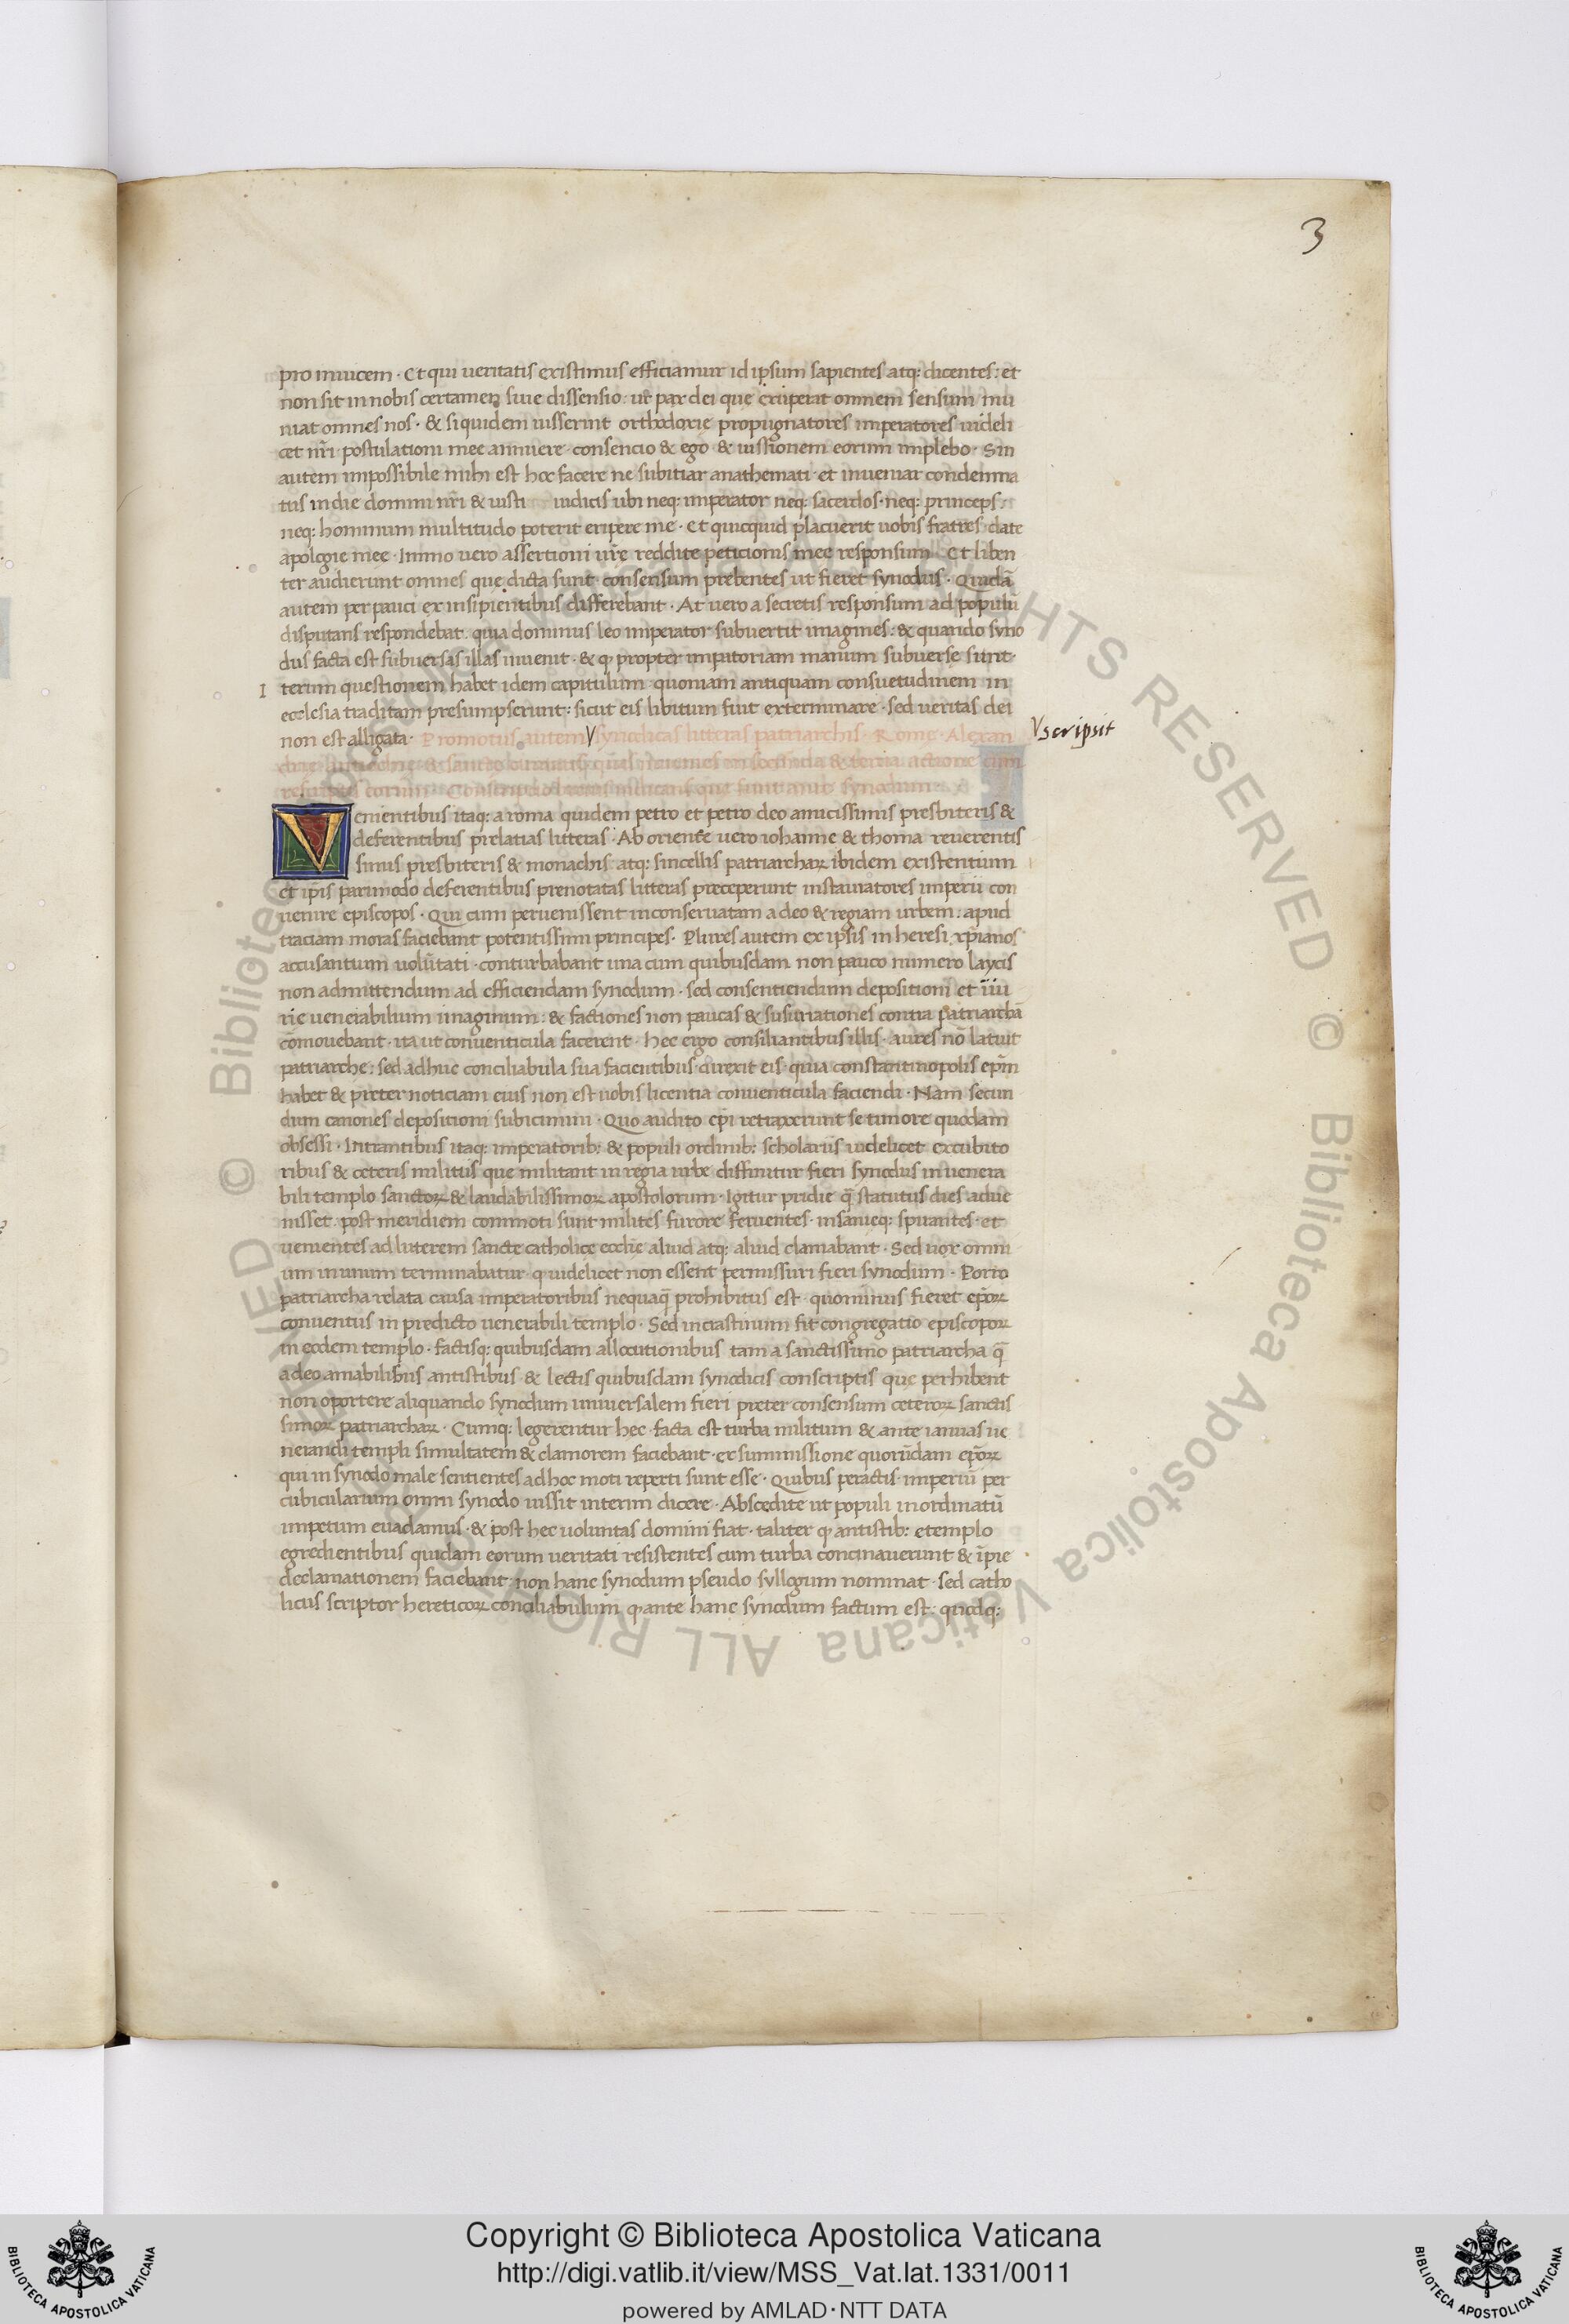 3
pro inuicem · Et qui ueritatis existimus efficiamur id ipsum sapientes atq: dicentes: et
non sit in nobis certamen siue dissensio: ut pax dei que exuperat omnem sensum mu
niat omnes nos · & siquidem iusserint orthodoxie propugnatores imperatores uideli
cet nr̃i postulationi mee annuere · consencio & ego & iussionem eorum implebo · Sin
autem impossibile mihi est hoc facere ne subitiar anathemati · et inueniar condemna
tus in die domini nr̃i & iusti iudicis ubi neq: imperator neq: sacerdos · neq: princeps
neq: hominum multitudo poterit eripere me · Et quicquid placuerit uobis fratres date
apologie mee · Immo uero assertioni ur̃e reddite peticionis mee responsum · Et liben
ter audierunt omnes que dicta sunt consensum prebentes ut fieret synodus · Quidã
autem perpauci ex insipientibus differebant · At uero a secretis responsum ad populũ
disputans respondebat · quia dominus leo imperator subuertit imagines: & quando syno
dus facta est subuersas illas inuenit · & q propter impatoriam manum subuerse sunt ·
I terum questionem habet idem capitulum quoniam antiquam consuetudinem in
ecclesia traditam presumpserunt: sicut eis libitum fuit exterminare · sed ueritas dei
non est alligata · Promotus autem V synodicas litteras patriarchis · Rome · Alexan
V scripsit
V enientibus itaq: a roma quidem petro et petro deo amicissimis presbiteris &
deferentibus prelatias litteras · Ab oriente uero iohanne & thoma reuerentis
simis presbiteris & monachis atq: sincellis patriarchaꝝ ibidem existentium
et ip̃is parimodo deferentibus prenotatas litteras preceperunt instauratores imperii con
uenire episcopos · Qui cum peruenissent in conseruatam a deo & regiam urbem: apud
traciam moras faciebant potentissimi principes · Plures autem ex ipsis in heresi xp̃ianos
accusantium uolũtati · conturbabant una cum quibusdam non pauco numero laycis
non admittendum ad efficiendam synodum · sed consentiendum depositioni et iniu
rie uenerabilium imaginum: & factiones non paucas & susurrationes contra patriarchã
cõmouebant · ita ut conuenticula facerent · hec ergo consiliantibus illis · aures nõ latuit
patriarche: sed adhuc conciliabula sua facientibus direxit eis · quia constantinopolis ep̃m
habet & preter noticiam eius non est uobis licentia conuenticula faciendi · Nam secun
dum canones depositioni subicimini · Quo audito ep̃i retraxerunt se timore quodam
obsessi · Intrantibus itaq: imperatorib: & populi ordinib: scholariis uidelicet excubito
ribus & ceteris militiis que militant in regia urbe diffinitur fieri synodus in uenera
bili templo sanctoꝝ & laudabilissimoꝝ apostolorum · Igitur pridie q̃ statutus dies adue
nisset post meridiem commoti sunt milites furore feruentes · insanieq: spirantes · et
uenientes ad luterem sancte catholice ecclie aliud atq: aliud clamabant · Sed uox omni
um in unum terminabatur · q uidelicet non essent permissuri fieri synodum · Porro
patriarcha relata causa imperatoribus nequaq̃ prohibitus est quominus fieret ep̃oꝝ
conuentus in predicto uenerabili templo · Sed in crastinum fit congregatio episcopoꝝ
in eodem templo · factisq: quibusdam allocutionibus tam a sanctissimo patriarcha q̃
a deo amabilibus antistibus & lectis quibusdam synodicis conscriptis que perhibent
non oportere aliquando synodum uniuersalem fieri preter consensum ceteroꝝ sanctis
simoꝝ patriarchaꝝ · Cumq: legerentur hec · facta est turba militum & ante ianuas ue
nerandi templi simultatem & clamorem faciebant · ex summissione quorũdam ep̃oꝝ
qui in synodo male sentientes ad hoc moti reperti sunt esse · Quibus peractis · imperiũ per
cubicularium omni synodo iussit interim dicere · Abscedite ut populi inordinatũ
impetum euadamus · & post hec uoluntas domini fiat · taliter q antistib: e templo
egredientibus quidam eorum ueritati resistentes cum turba concinauerunt & ip̃ie
declamationem faciebant · non hanc synodum pseudo syllogum nominat · sed catho
licus scriptor hereticoꝝ conciliabulum q ante hanc synodum factum est · quodq:
© Biblioteca Apostolica Vaticana ALL RIGHTS RESERVED
Copyright © Biblioteca Apostolica Vaticana
http://digi.vatlib.it/view/MSS_Vat.lat.1331/0011
powered by AMLAD·NTT DATA
BIBLIOTECA APOSTOLICA VATICANA
BIBLIOTECA APOSTOLICA VATICANA